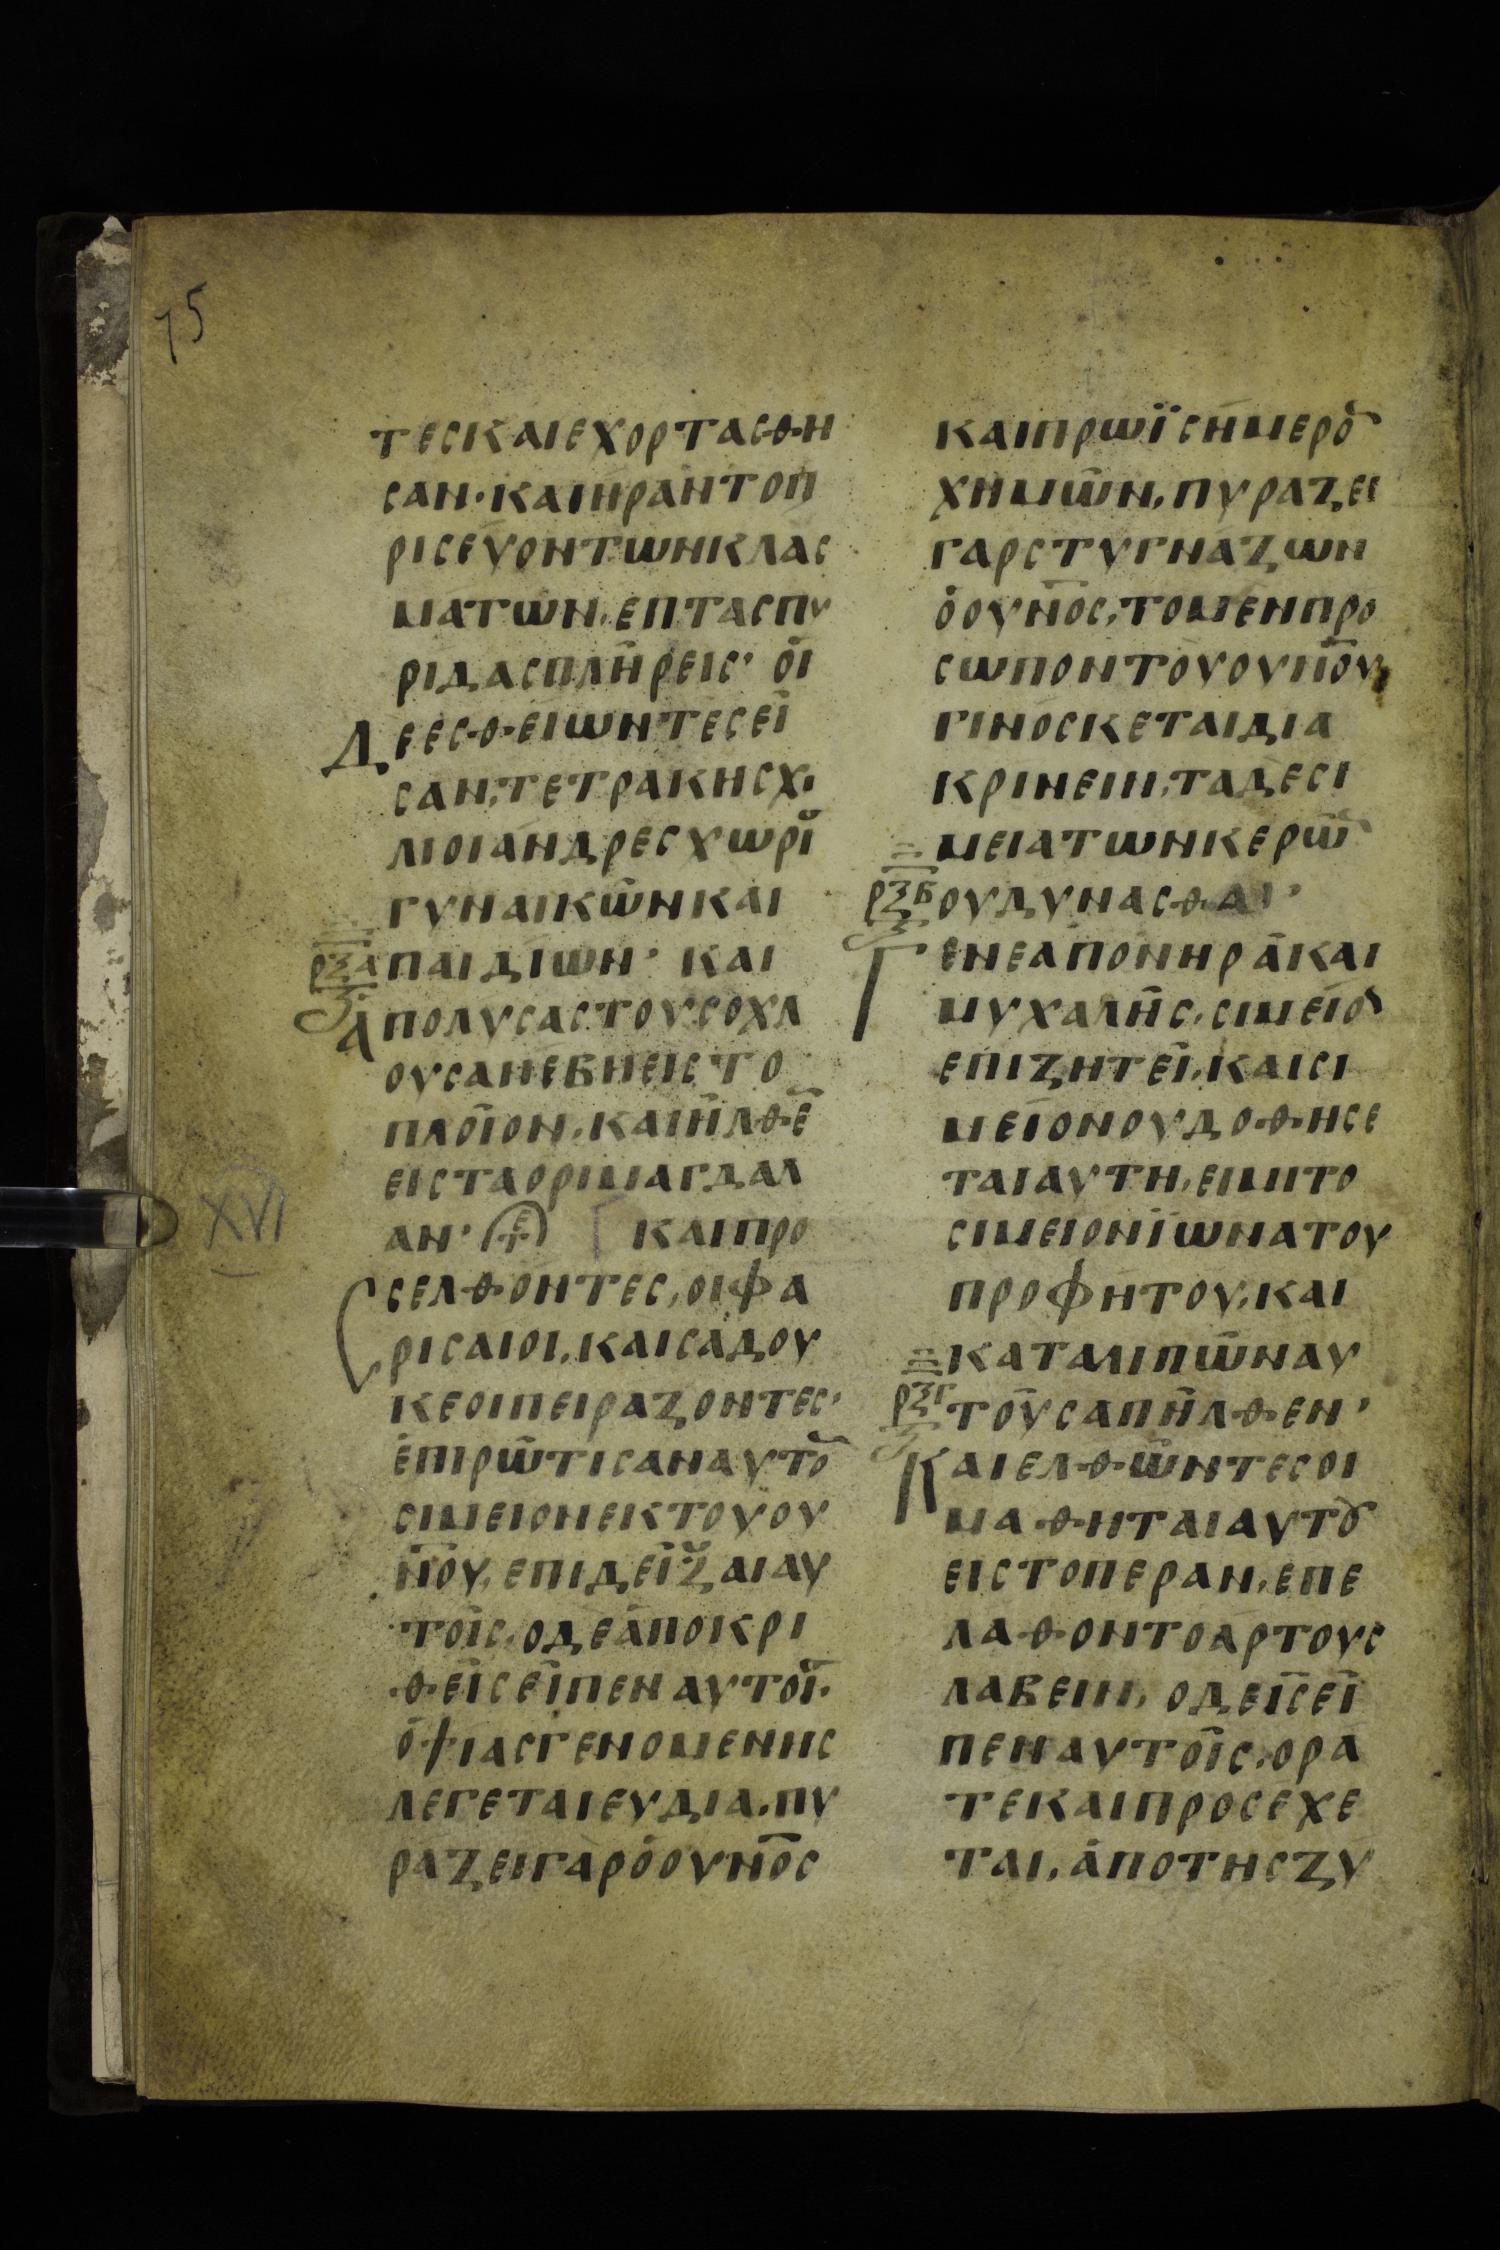 75
ΤΕСΚΑΙΕΧΟΡΤΑСΘΗ
СΑΝ·ΚΑΙΗΡΑΝΤΟΠ
ΡΙСΕΥΟΝΤΩΝΚΛΑС
ΜΑΤΩΝ,ΕΠΤΑСΠΥ
ΡΙΔΑСΠΛΗΡΕΙС· ΟΙ
ΔΕΕСΘΕΙΩΝΤΕСΕΙ
СΑΝ,ΤΕΤΡΑΚΗСΧΙ
ΛΙΟΙΑΝΔΡΕСΧΩΡΙ
ΓΥΝΑΙΚΩΝΚΑΙ
ΡΞΑ ΠΑΙΔΙΩΝ· ΚΑΙ
ΑΠΟΛΥСΑСΤΟΥСΟΧΛ
ΟΥСΑΝΕΒΗΕΙСΤΟ
ΠΛΟΙΟΝ,ΚΑΙΗΛΘΕ
ΕΙСΤΑΟΡΙΜΑΓΔΑΛ
XVI ΑΝ· ΚΑΙΠΡΟ
СΕΛΘΟΝΤΕС,ΟΙΦΑ
ΡΙСΑΙΟΙ,ΚΑΙСΑΔΟΥ
ΚΕΟΙΠΕΙΡΑΖΟΝΤΕС·
ΕΠΙΡΩΤΙСΑΝΑΥΤΟ̅
СΙΜΕΙΟΝΕΚΤΟΥΟΥ
ΝΟΥ,ΕΠΙΔΕΙΞΑΙΑΥ
ΤΟΙС,ΟΔΕΑΠΟΚΡΙ
ΘΕΙСΕΙΠΕΝΑΥΤΟΙ·
ΟΨΙΑСΓΕΝΟΜΕΝΗС
ΛΕΓΕΤΑΙΕΥΔΙΑ,ΠΥ
ΡΑΖΕΙΓΑΡΟΟΥΝΟС
ΚΑΙΠΡΩΪСΗΜΕΡΟ
ΧΗΜΩΝ,ΠΥΡΑΖΕΙ
ΓΑΡСΤΥΓΝΑΖΩΝ
ΟΟΥΝΟС,ΤΟΜΕΝΠΡΟ
СΩΠΟΝΤΟΥΟΥΝΟΥ,
ΓΙΝΟСΚΕΤΑΙΔΙΑ
ΚΡΙΝΕΙΝ,ΤΑΔΕСΙ
ΜΕΙΑΤΩΝΚΕΡΩ
ΡΞΒ ΟΥΔΥΝΑСΘΑΙ·
ΓΕΝΕΑΠΟΝΗΡΑΚΑΙ
ΜΥΧΑΛΗС,СΙΜΕΙΟ
ΕΠΙΖΗΤΕΙ,ΚΑΙСΙ
ΜΕΙΟΝΟΥΔΟΘΗСΕ
ΤΑΙΑΥΤΗ,ΕΙΜΙΤΟ
СΙΜΕΙΟΝΪΩΝΑΤΟΥ
ΠΡΟΦΗΤΟΥ,ΚΑΙ
ΚΑΤΑΛΙΠΩΝΑΥ
ΡΞΓ ΤΟΥСΑΠΗΛΘΕΝ·
ΚΑΙΕΛΘΩΝΤΕСΟΙ
ΜΑΘΗΤΑΙΑΥΤȢ
ΕΙСΤΟΠΕΡΑΝ,ΕΠΕ
ΛΑΘΟΝΤΟΑΡΤΟΥС
ΛΑΒΕΙΝ, ΟΔΕΙСΕΙ
ΠΕΝΑΥΤΟΙС,ΟΡΑ
ΤΕΚΑΙΠΡΟСΕΧΕ
ΤΑΙ,ΑΠΟΤΗСΖΥ